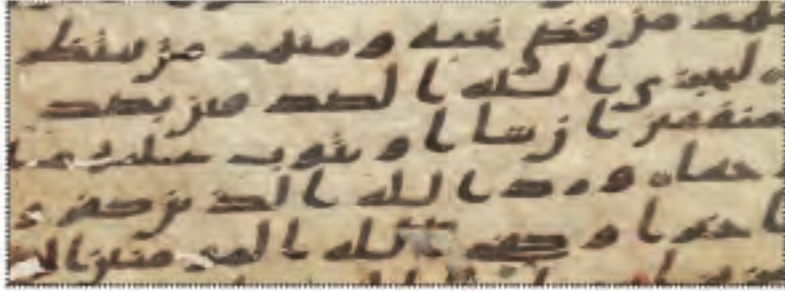 منهم من قضى نحبه ومنهم من ينتظر
ليجزى الله الصدقين بصد
منفقين ان شا او يتوب عليهم ا
رحيما ورد الله الذين كفرو
ا خيرا وكفى الله المومنين الق